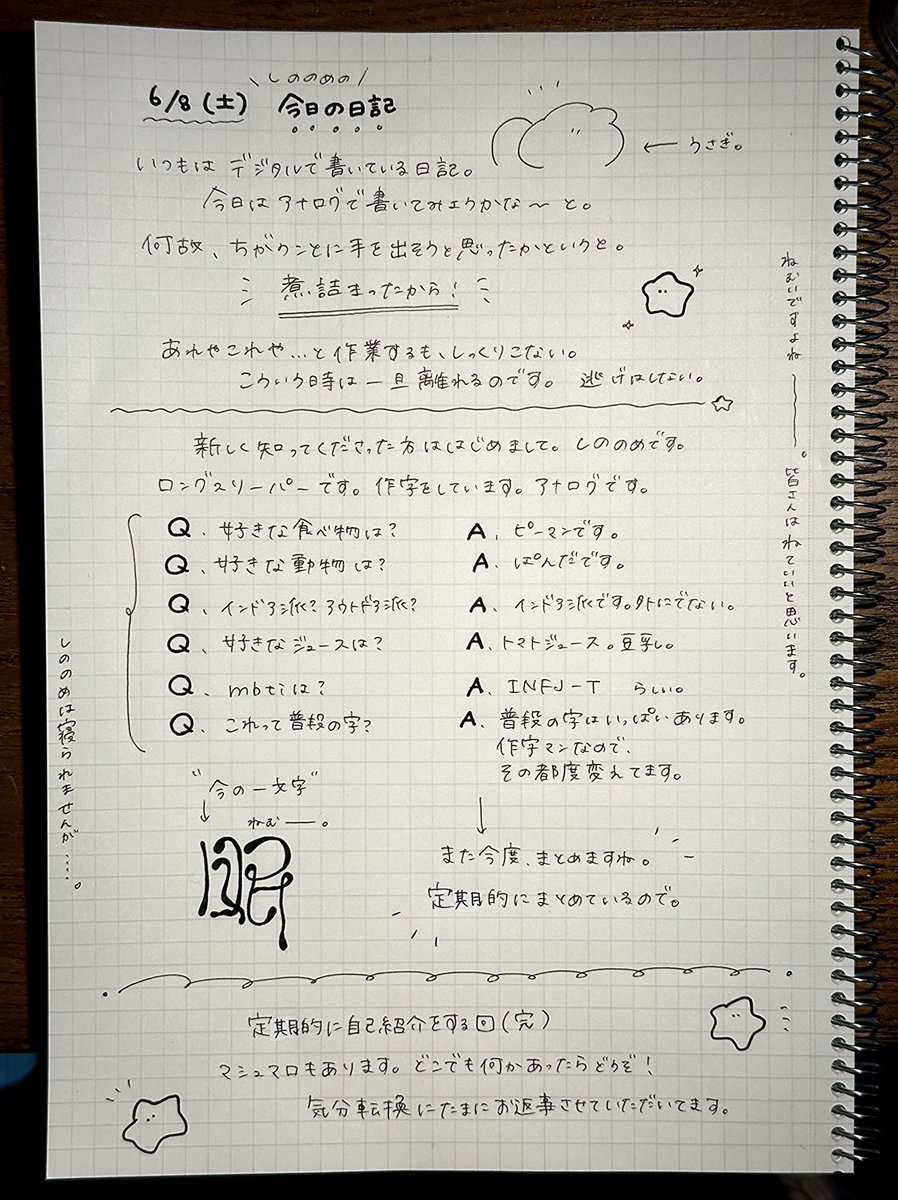 \ しののめの /
6/8(土) 今日の日記
← うさぎ。
いつもは デジタルで書いている日記。
今日は アナログで書いてみようかな〜 と。
何故、ちがうことに手を出そうと思ったかというと。
煮詰まったから!
あれやこれや…と作業するも、しっくりこない。
こういう時は 一旦 離れるのです。 逃げはしない。
新しく知ってくださった方ははじめまして。しののめです。
ロングスリーパーです。作字をしています。アナログです。
Q、好きな食べ物は? A、ピーマンです。
Q、好きな動物は? A、ぱんだです。
Q、インドア派?アウトドア派? A、インドア派です。外にでない。
Q、好きなジュースは? A、トマトジュース。豆乳。
Q、mbtiは? A、INFJ-T らしい。
Q、これって普段の字? A、普段の字はいっぱいあります。
作字マンなので、
その都度変えてます。
"今の一文字"
ねむ——。
眠
また今度、まとめますね。
定期的にまとめているので。
定期的に自己紹介をする回(完)
マシュマロもあります。どこでも何かあったらどうぞ!
気分転換にたまにお返事させていただいてます。
ねむいですよね———。皆さんはねていいと思います。
しののめは寝られませんが……。